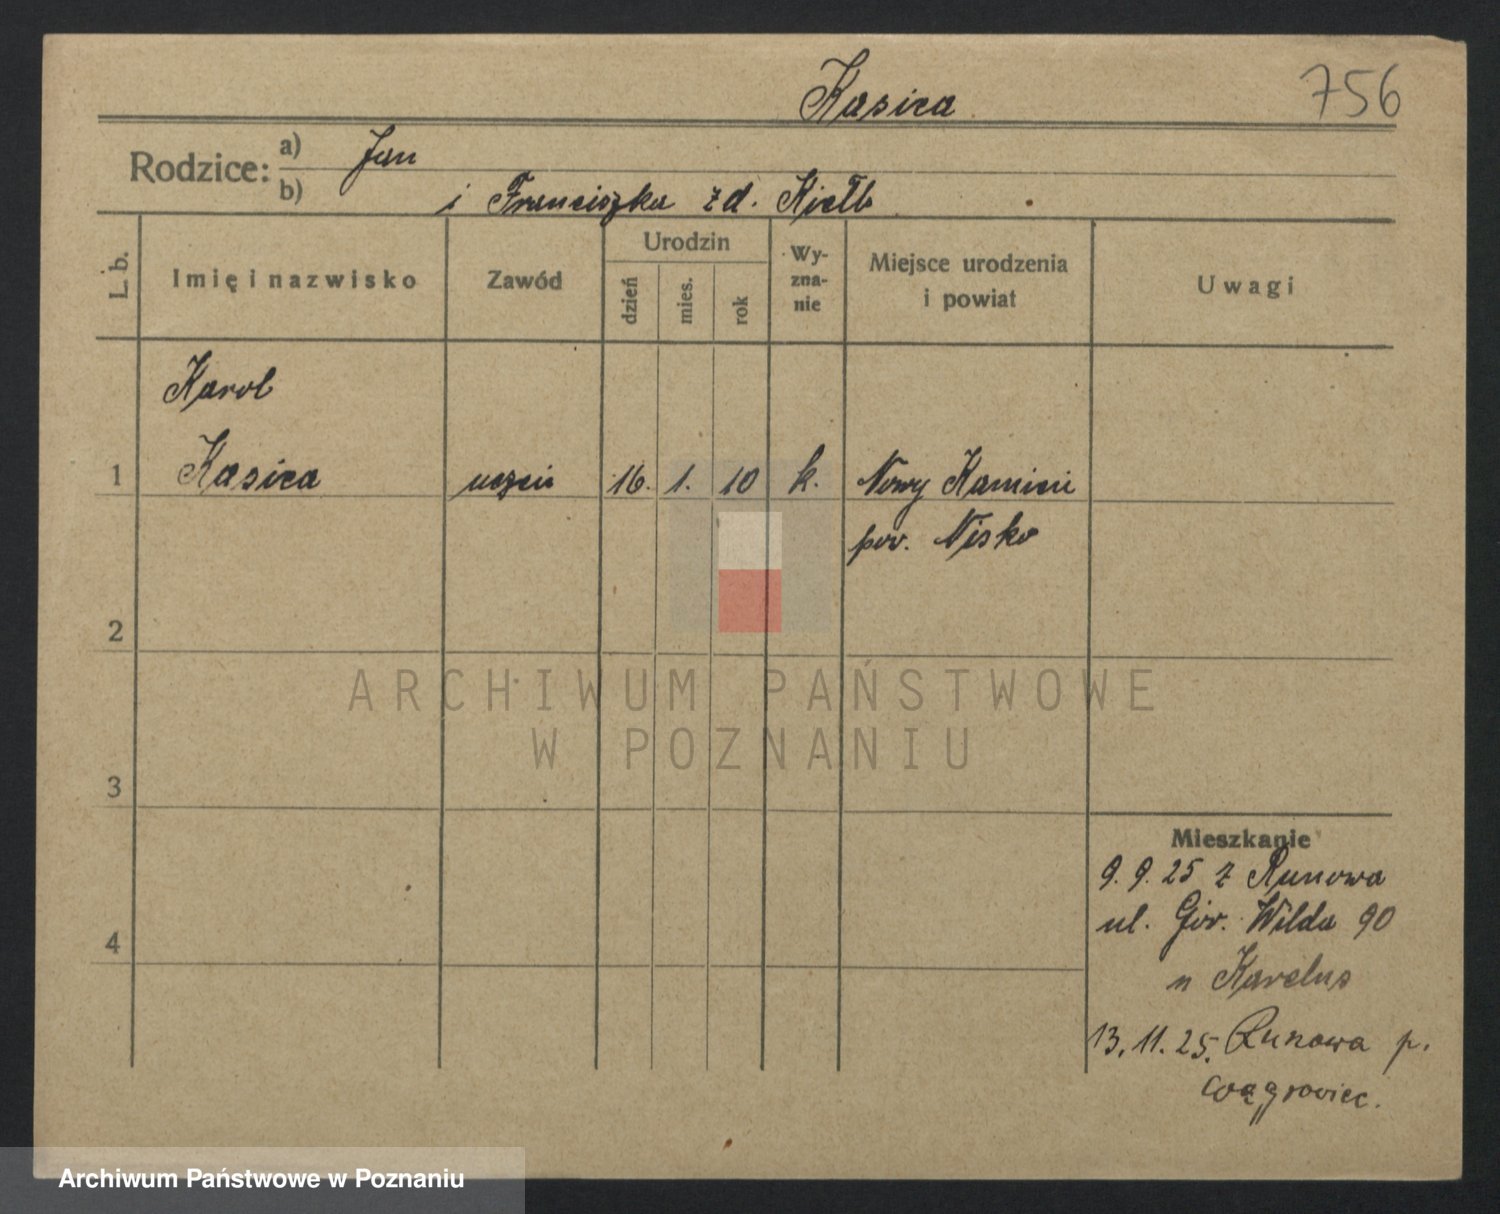 Kasica 756
Rodzice: a) Jan
b) i Franciszka z d. Kiełb
L. b. Imię i nazwisko Zawód Urodzin dzień mies. rok Wy-zna-nie Miejsce urodzenia i powiat Uwagi
Karol
1 Kasica uczeń 16. 1. 10 k. Nowy Kamień
pow. Nisko
2
ARCHIWUM PAŃSTWOWE
W POZNANIU
3
Mieszkanie
9. 9. 25 z Runowa
ul. Gór. Wilda 90
4
u Karelus
13. 11. 25. Runowa p.
Wągrowiec.
Archiwum Państwowe w Poznaniu